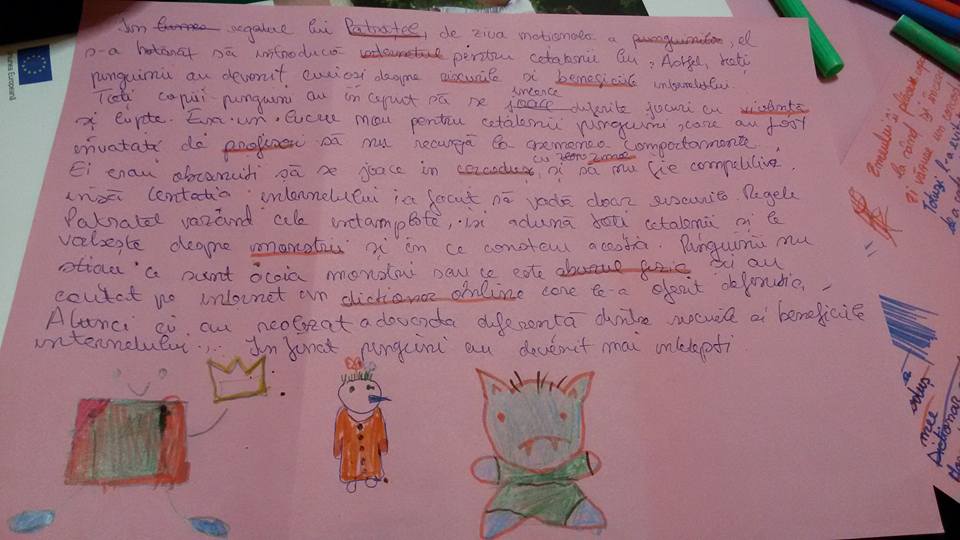 În lumea regatul lui Patratel, de ziua nationala a pinguinilor, el
s-a hotărât să introducă internetul pentru cetatenii lui. Astfel, toți
pinguinii au devenit curioși despre riscurile si beneficiile internetului.
Toți copiii pinguini au început să se joace incerce diferite jocuri cu violență
și lupte. Era un lucru nou pentru cetatenii pinguini, care au fost
invatati de profesori să nu recurgă la asemenea comportamente.
Ei erau obisnuiti să se joace în cu zmee, și să nu fie competitivi.
însă tentatia internetului i-a facut să vadă doar riscurile. Regele
Patratel vazând cele intamplate, isi adună toti cetatenii și le
vorbește despre monstrii și în ce constau acestia. Pinguinii nu
stiau ce sunt acoia monstrii sau ce este abuzul fizic si au
cautat pe internet un dictionar online care le-a oferit definitia.
Atunci ei au realizat adevarata diferentă dintre riscurile si beneficiile
internetului... In final pinguini au devenit mai intelepti.
Uniunea Europeană
Zmeului îi place
Totusi l-a
solus
mee
Dictionar